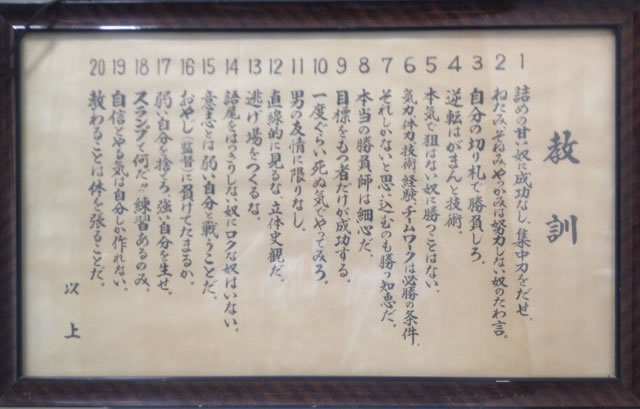 教訓
1 詰めの甘い奴に成功なし、集中力をだせ。
2 ねたみ、そねみ、やっかみは努力しない奴のたわ言。
3 自分の切り札で勝負しろ。
4 逆転はがまんと技術。
5 本気で狙はない奴に勝つことはない。
6 気力、体力、技術、経験、チームワークは必勝の条件。
7 それしかないと思い込むのも勝つ知恵だ。
8 本当の勝負師は細心だ。
9 目標をもつ者だけが成功する。
10 一度ぐらい死ぬ気でやってみろ。
11 男の友情に限りなし。
12 直線的に見るな、立体史観だ。
13 逃げ場をつくるな。
14 語尾をはっきりしない奴にロクな奴はいない。
15 意地とは弱い自分と戦うことだ。
16 おやじ(監督)に負けてたまるか。
17 弱い自分を捨てろ、強い自分を生せ。
18 スランプて何だ!!練習あるのみ。
19 自信とやる気は自分しか作れない。
20 教わることは体を張ることだ。
以上